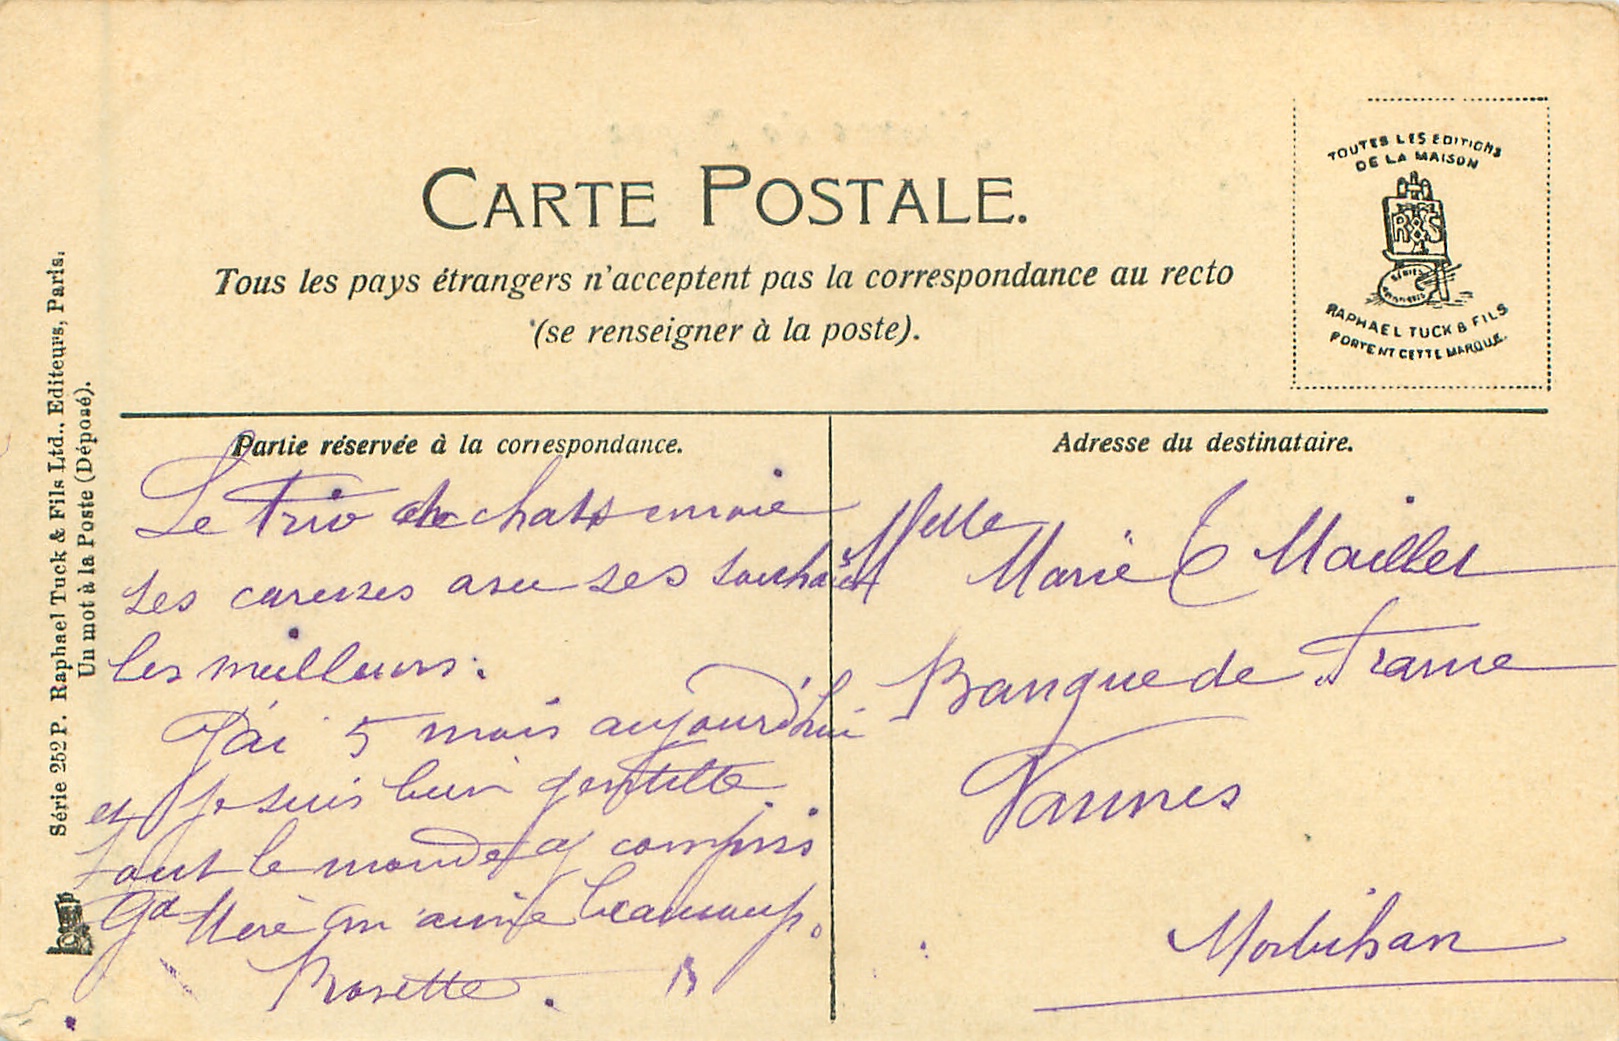 CARTE POSTALE.
Tous les pays étrangers n'acceptent pas la correspondance au recto
(se renseigner à la poste).
TOUTES LES EDITIONS
DE LA MAISON
RTS
RAPHAEL TUCK & FILS
PORTENT CETTE MARQUE.
Série 252 P. Raphael Tuck & Fils Ltd., Editeurs, Paris.
Un mot à la Poste (Déposé).
Partie réservée à la correspondance.
Le trio de chats envoie
ses caresses avec ses souhaits
les meilleurs.
J'ai 5 mois aujourd'hui
et je suis bien gentille
tout le monde y compris
Gd Mère m'aime beaucoup.
Rosette.
Adresse du destinataire.
Melle Marie Maillet
Banque de France
Vannes
Morbihan